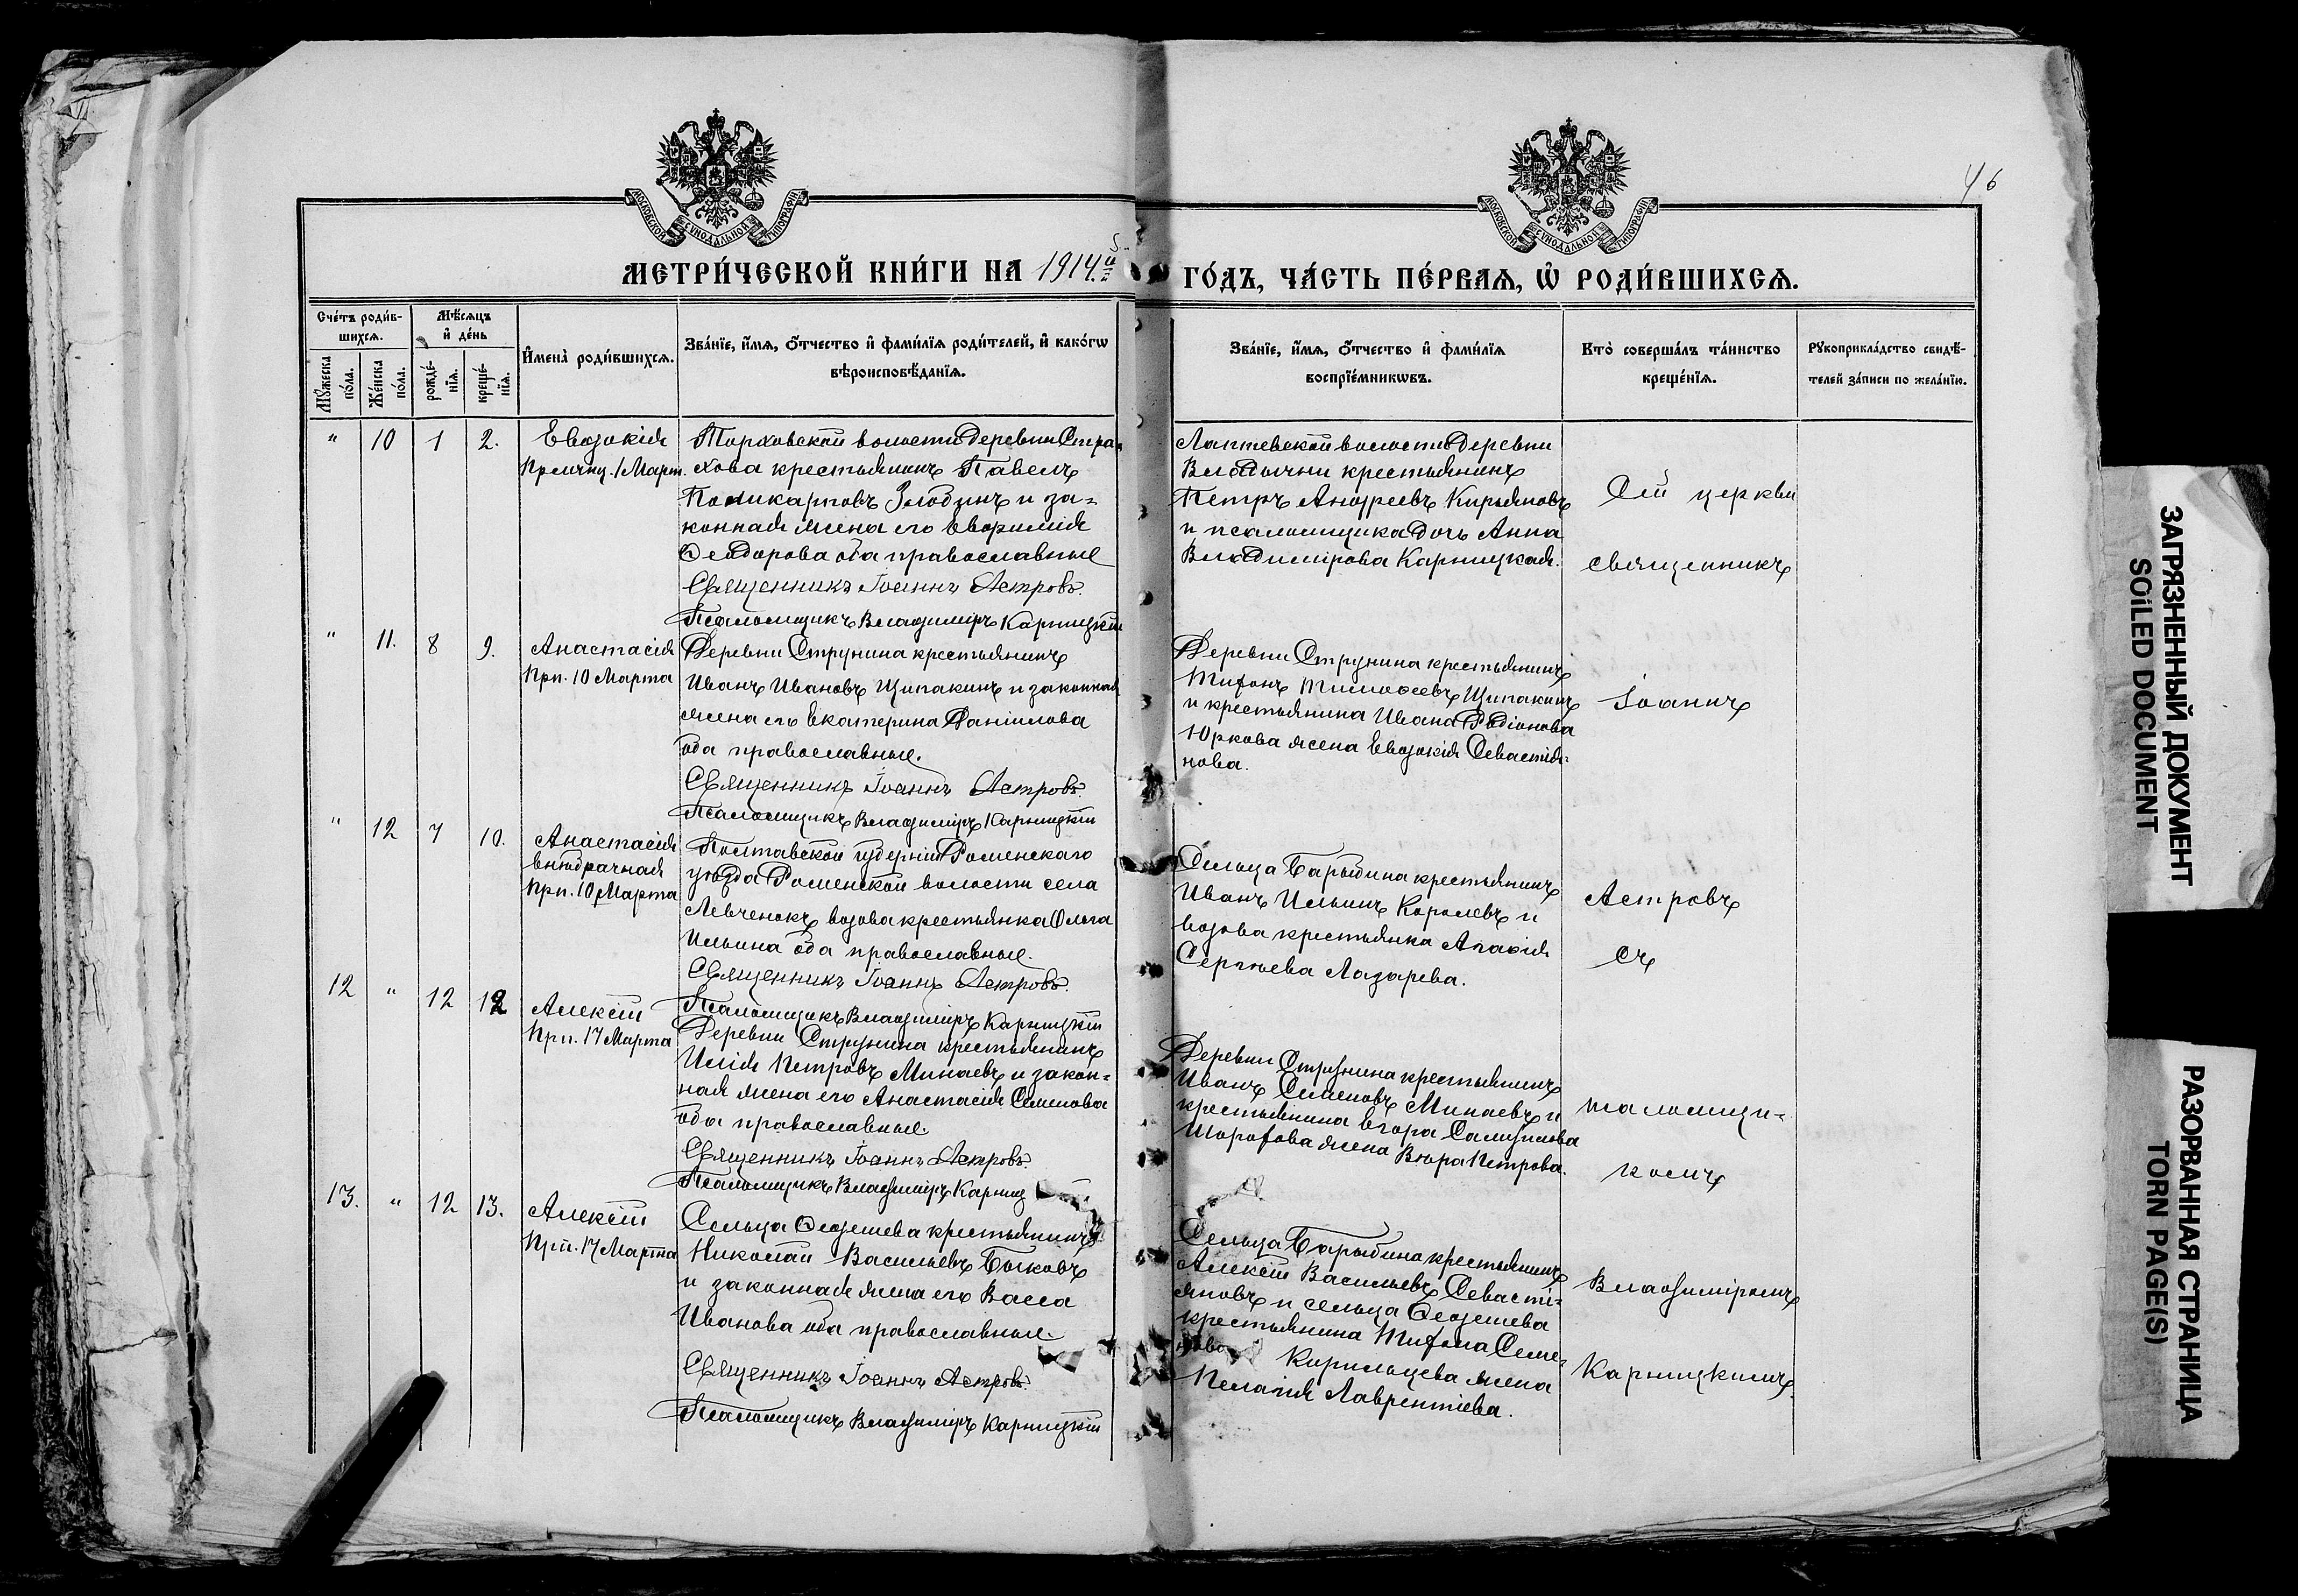 46
МОСКОВСКОЙ СѴНОДАЛЬНОЙ ТИПОГРАФІИ
МОСКОВСКОЙ СѴНОДАЛЬНОЙ ТИПОГРАФІИ
МЕТРИ́ЧЕСКОЙ КНИ́ГИ НА 1914.й 5 ГО́ДЪ, ЧА́СТЬ ПЕ́РВАѦ, Ѡ҆ РОДИ́ВШИХСѦ.
Сче́тъ роди́в-
шихсѧ.
Мꙋ́жеска по́ла.
Же́нска по́ла.
Мѣ́сѧцъ и҆ де́нь
рожде́-нїѧ.
креще́-нїѧ.
И҆мена̀ роди́вшихсѧ.
Зва́нїе, и҆́мѧ, о҆́тчество и҆ фами́лїѧ роди́телей, и҆ како́гѡ
вѣроисповѣ́данїѧ.
Зва́нїе, и҆́мѧ, о҆́тчество и҆ фами́лїѧ
воспрїе́мникѡвъ.
Кто̀ соверша́лъ та́инство
креще́нїѧ.
Рꙋкоприкла́дство свидѣ́-
телей за́писи по жела́нїю.
" 10 1 2.
Евдокія
Прмчнц. 1 Март.
Торховской волости деревни Стра-
хова крестьянинъ Павелъ
Поликарповъ Злобинъ и за-
конная жена его Евфимія
Ѳеодорова оба православные
Священникъ Іоаннъ Астровъ.
Псаломщикъ Владиміръ Карницкій
Лаптевской волости деревни
крестьянинъ
Петръ Андреевъ Кирьяновъ
и псаломщика дочь Анна
Владимірова Карницкая.
" 11. 8 9.
Анастасія
Прп. 10 Марта
Деревни Струнина крестьянинъ
Иванъ Ивановъ Щипакинъ и законная
жена его Екатерина Даніилова
оба православные.
Священникъ Іоаннъ Астровъ.
Псаломщикъ Владиміръ Карницкій
Деревни Струнина крестьянинъ
Тихонъ Тимоѳеевъ Щипакинъ
и крестьянина Ивана Родіонова
Юркова жена Евдокія Севастія-
нова.
" 12 7 10.
Анастасія
внѣбрачная
Прп. 10 Марта
Полтавской губерніи Роменскаго
уѣзда Роменской волости села
Левченокъ вдова крестьянка Ольга
Ильина оба православные.
Священникъ Іоаннъ Астровъ.
Псаломщикъ Владиміръ Карницкій
Сельца Барыбина крестьянинъ
Иванъ Ильинъ Королевъ и
вдова крестьянка
Сергѣева Лазарева.
12 " 12 12
Алексій
Прп. 17 Марта
Деревни Струнина крестьянинъ
Илія Петровъ Минаевъ и закон-
ная жена его Анастасія Семенова
оба православные.
Священникъ Іоаннъ Астровъ.
Псаломщикъ Владиміръ Карниц
Деревни Струнина крестьянинъ
Иванъ Семеновъ Минаевъ и
крестьянина Егора Самуилова
жена Вѣра Петрова.
13. " 12 13.
Алексій
Прп. 17 Марта
Сельца крестьянинъ
Николай Васильевъ Быковъ
и законная жена его Васса
Иванова оба православные.
Священникъ Іоаннъ Астровъ.
Псаломщикъ Владиміръ Карницкій
Сельца Барыбина крестьянинъ
Алексій Васильевъ Севасті-
яновъ и сельца
крестьянина Тихона Семе-
нова Кирильцева жена
Пелагія Лаврентіева.
Сей церкви
священникъ
Іоаннъ
Астровъ
съ
псаломщи-
комъ
Владиміромъ
Карницкимъ.
ЗАГРЯЗНЕННЫЙ ДОКУМЕНТ
SOILED DOCUMENT
РАЗОРВАННАЯ СТРАНИЦА
TORN PAGE(S)